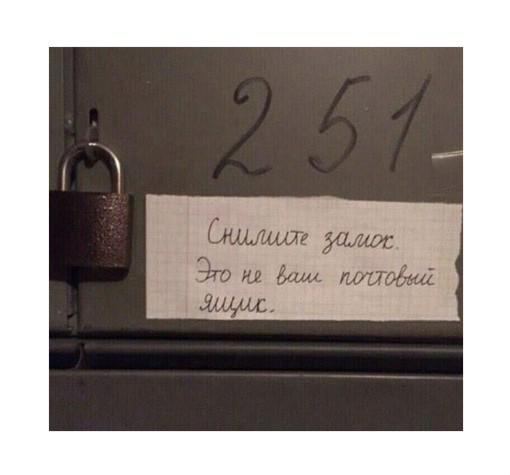 251
Снимите замок.
Это не ваш почтовый
ящик.